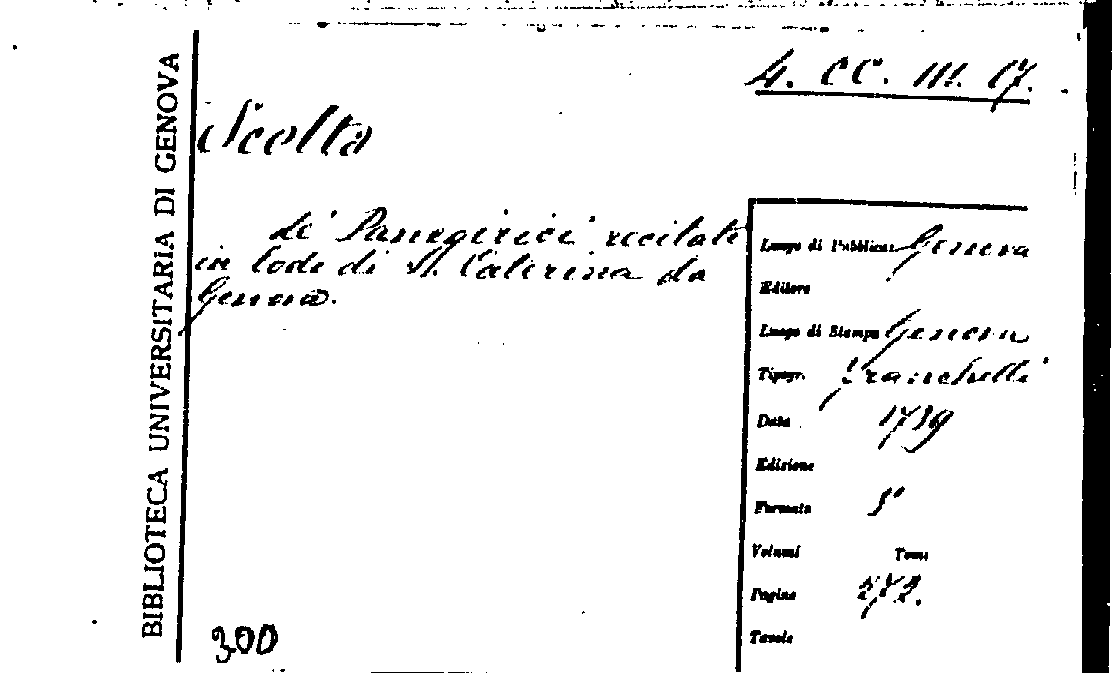 BIBLIOTECA UNIVERSITARIA DI GENOVA
4. CC. III. 17.
Scelta
di Panegirici recitati
in lode di S. Caterina da
Genova.
Luogo di Pubblicaz. Genova
Editore
Luogo di Stampa Genova
Tipogr. Franchelli
Data 1739
Edizione
Formato 8°
Volumi Tomi
Pagine 272.
Tavole
300